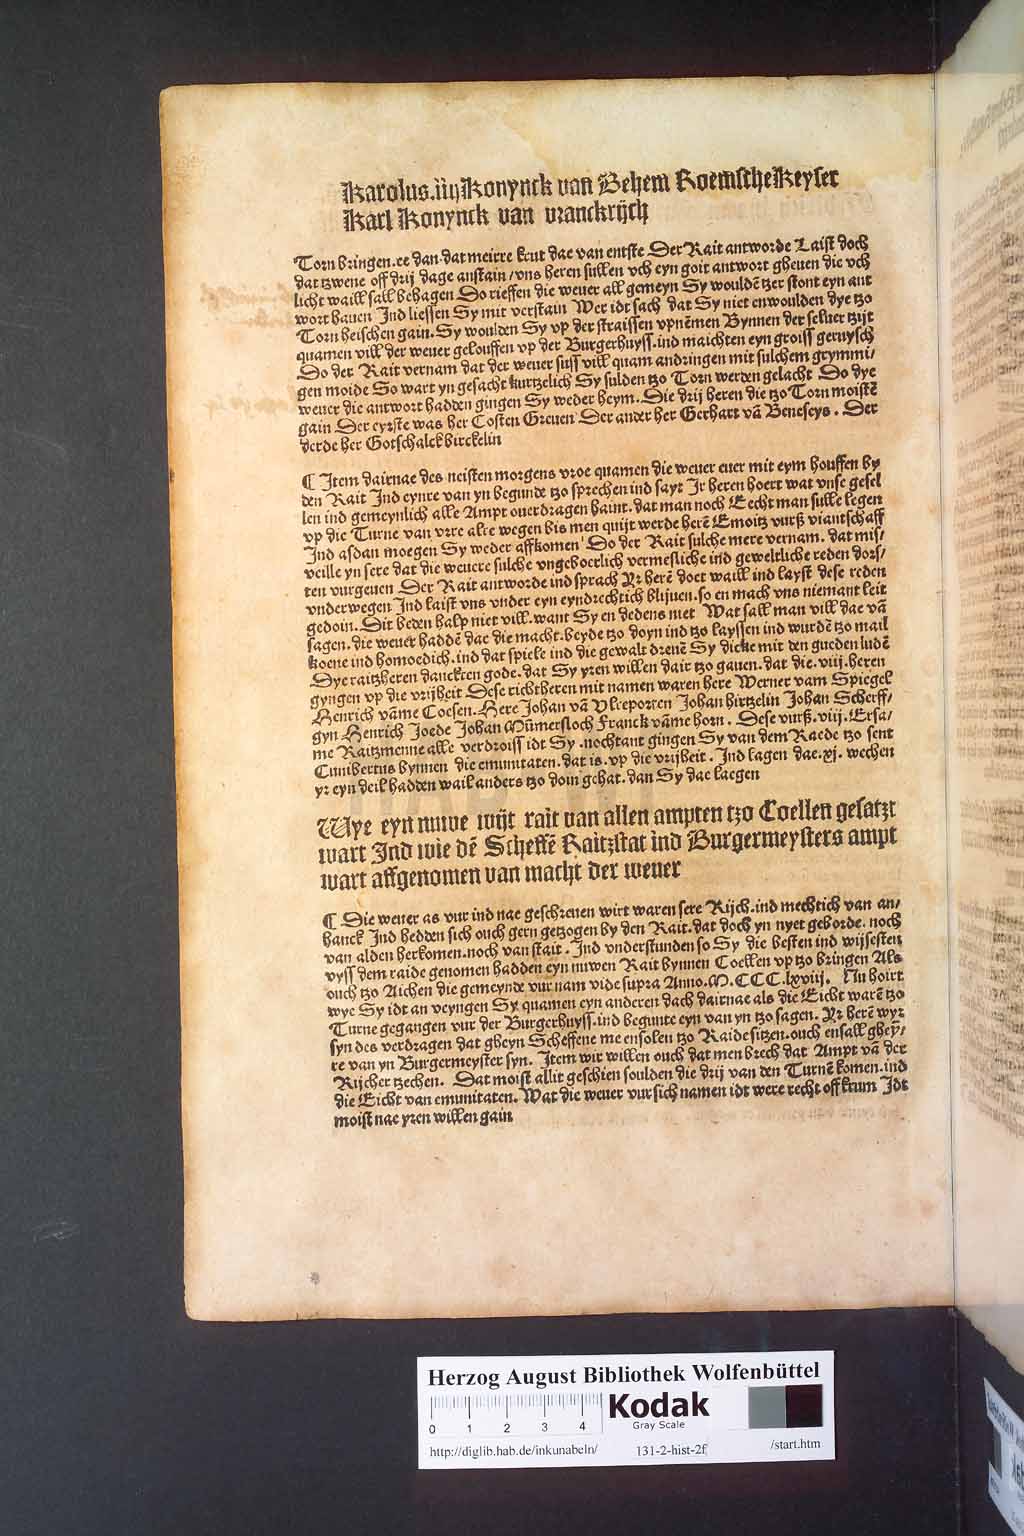 Karolus.iiij Konynck van Behem Roemsche Keyser
Karl Konynck van vranckrijch
Torn bringen.ee dan.dat meirre krut dae van entste Der Rait antworde Laist doch
dat tzwene off drij dage anstain/vns heren sullen vch eyn goit antwort gheuen die vch
licht waill sall behagen Do rieffen die weuer all gemeyn Sy wouldē tzer stont eyn ant
wort hauen Ind liessen Sy mit verstain Wer idt sach dat Sy niet enwoulden dye tzo
Torn heischen gain. Sy woulden Sy vp der straissen vpnēmen Bynnen der seluer tzijt
quamen vill der weuer gelouffen vp der Burgerhuyss.ind maichten eyn groiss geruysch
Do der Rait vernam dat der weuer suss vill quam andringen mit sulchem grymmi/
gen moide So wart yn gesacht kurtzelich Sy sulden tzo Torn werden gelacht Do dye
weuer die antwort hadden gingen Sy weder heym. Die drij heren die tzo Torn moistē
gain Der eyrste was her Costen Greuen Der ander her Gerhart vā Beneseys. Der
derde her Gotschalck birckelin
¶ Item dairnae des neisten morgens vroe quamen die weuer euer mit eym houffen by
den Rait Ind eynre van yn begunde tzo sprechen ind say: Ir heren hoert wat vnse gesel
len ind gemeynlich alle Ampt ouerdragen haint. dat man noch Eecht man sulle legen
vp die Turne van vrre alre wegen bis men quijt werde herē Emoitz vurß viantschaff
Ind asdan moegen Sy weder affkomen Do der Rait sulche mere vernam. dat mis/
veille yn sere dat die weuere sulche vngeboerlich vermesliche ind geweltliche reden dors/
ten vurgeuen Der Rait antworde ind sprach Yr herē doet waill ind layst dese reden
vnderwegen Ind laist vns vnder eyn eyndrechtich blijuen.so en mach vns niemant leit
gedoin. Dit beden halp niet vill. want Sy en dedens niet Wat sall man vill dae vā
sagen. die weuer haddē dae die macht.beyde tzo doyn ind tzo layssen ind wurdē tzo mail
koene ind homoedich.ind dat spiele ind die gewalt dreuē Sy dicke mit den gueden ludē
Dye raitzheren danckten gode.dat Sy yren willen dair tzo gauen.dat die.viij.heren
gyngen vp die vrijheit Dese richtheren mit namen waren here Werner vam Spiegel
Henrich vāme Coesen. Here Johan vā Vlreporten Johan hirtzelin Johan Scherff/
gyn Henrich Joede Johan Mūmersloch Franck vāme horn. Dese vurß.viij.Ersa/
me Raitzmenne alle verdroiss idt Sy.nochtant gingen Sy van dem Raede tzo sent
Cunibertus bynnen die emunitaten.dat is.vp die vrijheit. Ind lagen dae.xj. wechen
yr eyn deil hadden wail anders tzo doin gehat.dan Sy dae laegen
Wye eyn nuwe wijt rait van allen ampten tzo Coellen gesatzt
wart Ind wie dē Scheffē Raitzstat ind Burgermeysters ampt
wart affgenomen van macht der weuer
¶ Die weuer as vur ind nae geschreuen wirt waren sere Rijch.ind mechtich van an/
hanck Ind hedden sich ouch gern getzogen by den Rait.dat doch yn nyet geborde.noch
van alden herkomen.noch van stait. Ind vnderstunden so Sy die besten ind wijsesten
vyss dem raide genomen hadden eyn nuwen Rait bynnen Coellen vp tzo bringen Als
ouch tzo Aichen die gemeynde vur nam vide supra Anno.M.CCC.lxviij. Nu hoirt
wye Sy idt an veyngen Sy quamen eyn anderen dach dairnae als die Eicht warē tzo
Turne gegangen vur der Burgerhuyss.ind begunte eyn van yn tzo sagen. Yr herē wyr
syn des verdragen dat gheyn Scheffene me ensolen tzo Raide sitzen.ouch ensall gheȳ/
re van yn Burgermeyster syn. Item wir willen ouch dat men brech dat Ampt vā der
Rijcher tzechen. Dat moist allit geschien soulden die drij van den Turnē komen.ind
die Eicht van emunitaten. Wat die weuer vur sich namen idt were recht off krum Idt
moist nae yren willen gain
Herzog August Bibliothek Wolfenbüttel
0 1 2 3 4
Kodak
Gray Scale
http://diglib.hab.de/inkunabeln/ 131-2-hist-2f /start.htm